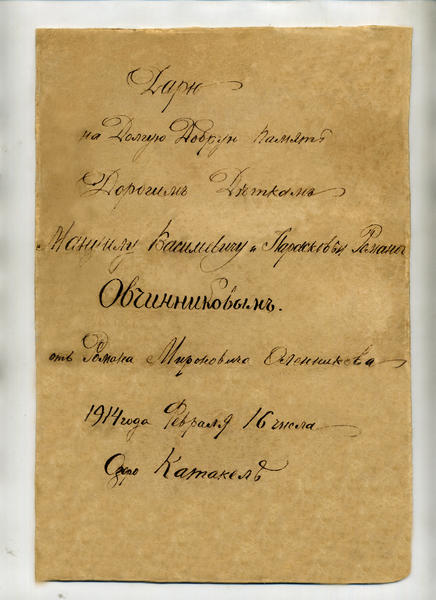 Дарю
на Долгую Добрую память
Дорогимъ Дѣткамъ
Мануилу Василивичу и Парасковѣи Романо
Овчинниковымъ.
отъ Романа Мироновича Оленникова
1914 года Февраля 16 числа
Катакелъ